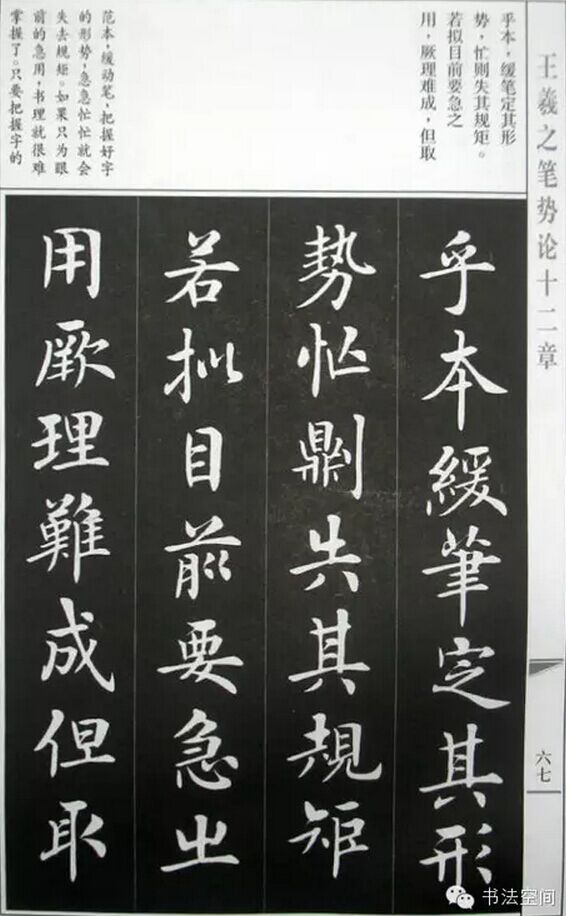 王羲之笔势论十二章
六七
乎本，缓笔定其形
势，忙则失其规矩。
若拟目前要急之
用，厥理难成，但取
范本，缓动笔，把握好字
的形势，急急忙忙就会
失去规矩。如果只为眼
前的急用，书理就很难
掌握了。只要把握字的
乎本緩筆定其形
勢忙則失其規矩
若拟目前要急之
用厥理難成但取
书法空间